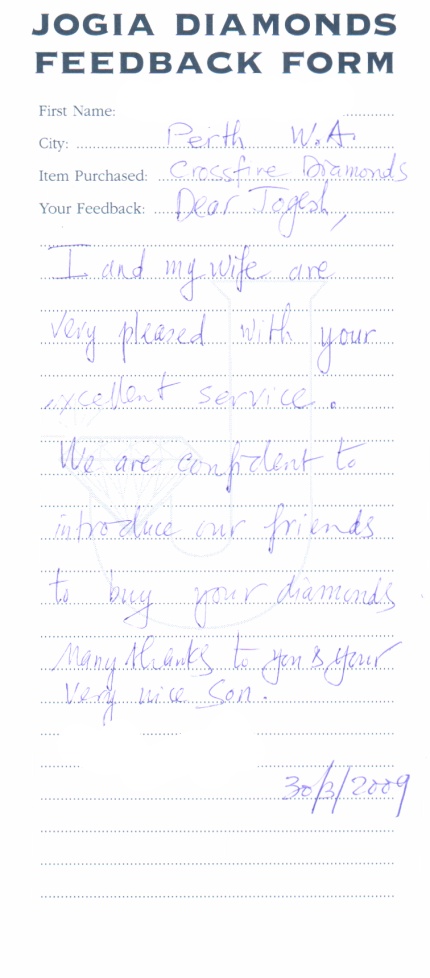 JOGIA DIAMONDS
FEEDBACK FORM
First Name:
City: Perth W.A.
Item Purchased: Crossfire Diamonds
Your Feedback: Dear Jogesh,
I and my wife are
very pleased with your
excellent service.
We are confident to
introduce our friends
to buy your diamonds
Many thanks to you & your
very nice son.
30/3/2009